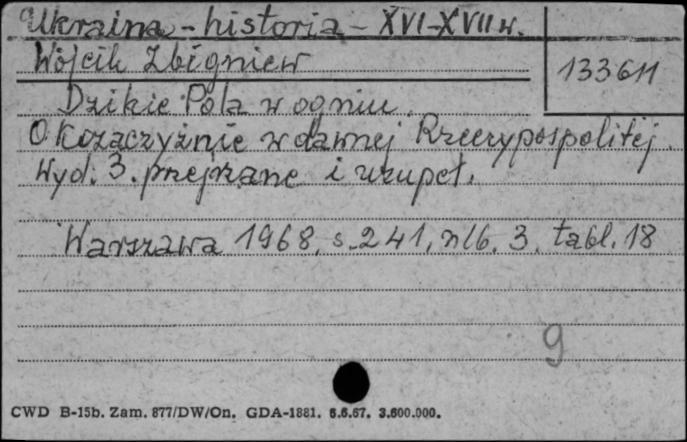 Ukraina - historia - XVI-XVII w.
Wójcik Zbigniew
133611
Dzikie Pola w ogniu.
O Kozaczyźnie w dawnej Rzeczypospolitej.
Wyd. 3. przejrzane i uzupeł.
Warszawa 1968, s. 241, nlb. 3. tabl. 18
9
CWD B-15b. Zam. 877/DW/On. GDA-1881. 6.6.67. 3.600.000.